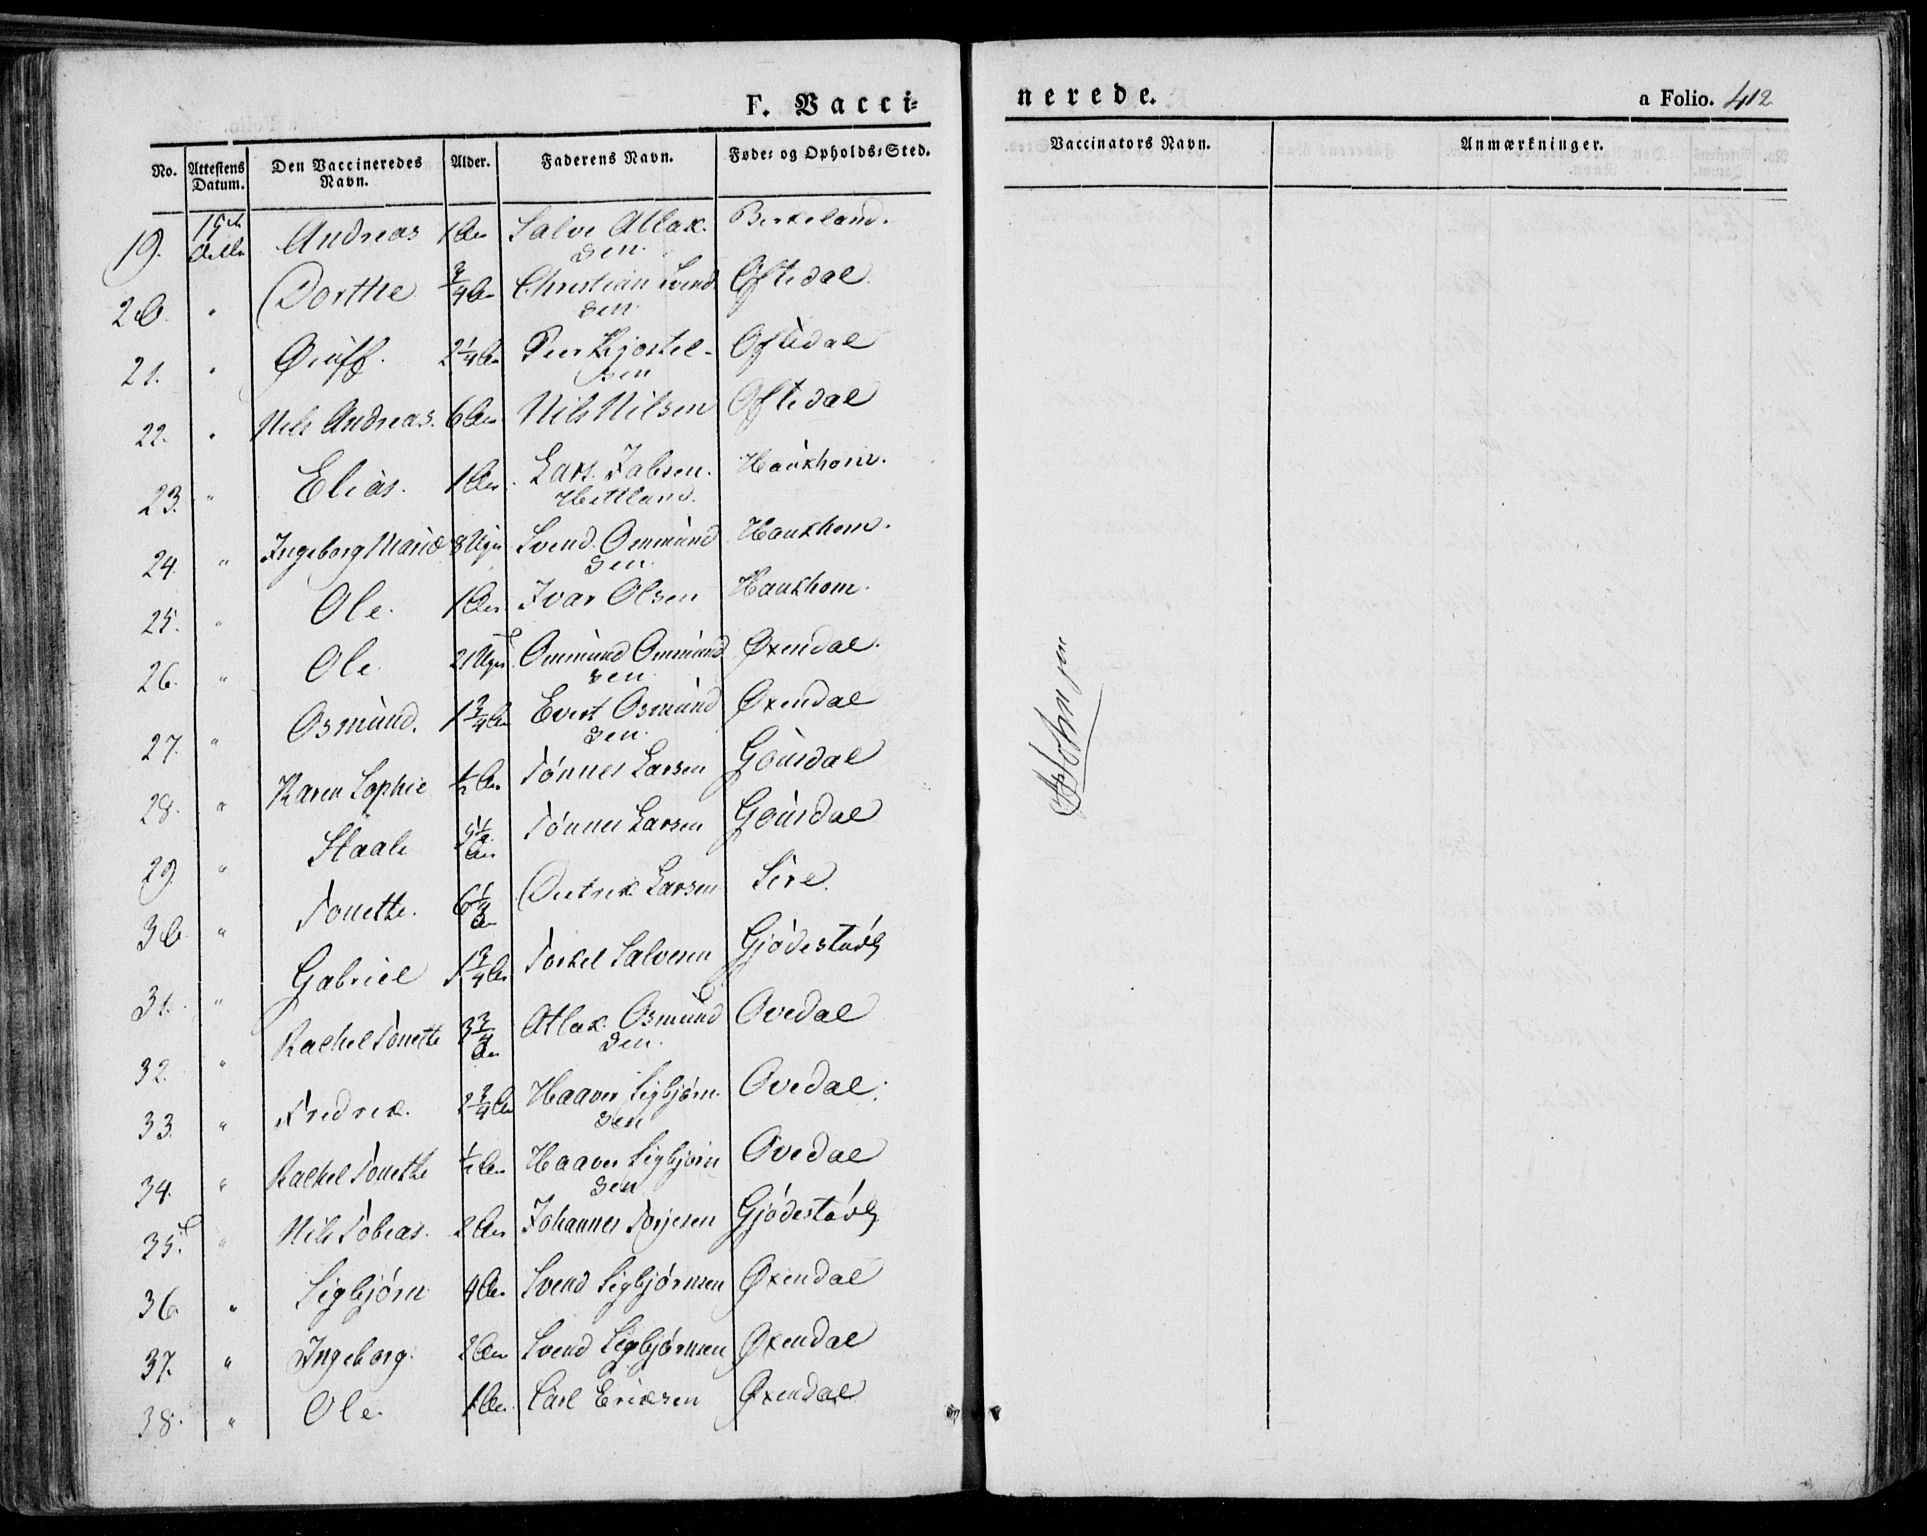 F. Vacci-
nerede.
a Folio. 412
No. Attestens Datum. Den Vaccineredes Navn. Alder. Faderens Navn. Føde- og Opholds-Sted. Vaccinators Navn. Anmærkninger.
19. 15de Andreas 1 Aar Salve Atlak-
sen. Berkeland.
20. " Dorthe 3/4 Aar Christian Svend
sen. Oftedal.
21. " 2 1/4 Aar Peer Kjostel-
sen Oftedal
22. " Nils Andreas. 6 Aar Nils Nilsen Oftedal
23. " Elias. 1 Aar. Lars
Hettland. Haukhom.
24. " Ingeborg Marie 8 Uger Svend Ommund
sen. Haukhom.
25. " Ole. 1 Aar Ivar Olsen Haukhom.
26. " Ole 21 Uger Ommund Ommund
sen. Øxendal.
27. " Osmund. 1 3/4 Aar Evert Osmund
sen. Øxendal
28. " Karen Sophie 1/2 Aar Tønnes Larsen Gousdal
29. " Staale Aar Tønnes Larsen Gousdal
30. " Tonette. 6 Aar Dietrik Larsen Sire.
31. " Gabriel 1 3/4 Aar Torkel Salvesen Gjødestøel
32. " Rachel Tonette 3 3/4 Aar Atlak Osmund
sen. Ovedal
33. " Fredrik. 2 3/4 Aar Haaver Sigbjørn-
sen Ovedal.
34. " Rachel Tonette 1/2 Aar Haaver Sigbjørn
sen Ovedal
35. " Nils Tobias. 2 Aar Johannes Torjesen Gjødestøel
36. " Sigbjørn 4 Aar Svend Sigbjørnsen Øxendal
37. " Ingeborg. 2 Aar Svend Sigbjørnsen Øxendal
38. " Ole. 1 Aar. Carl Eriksen Øxendal